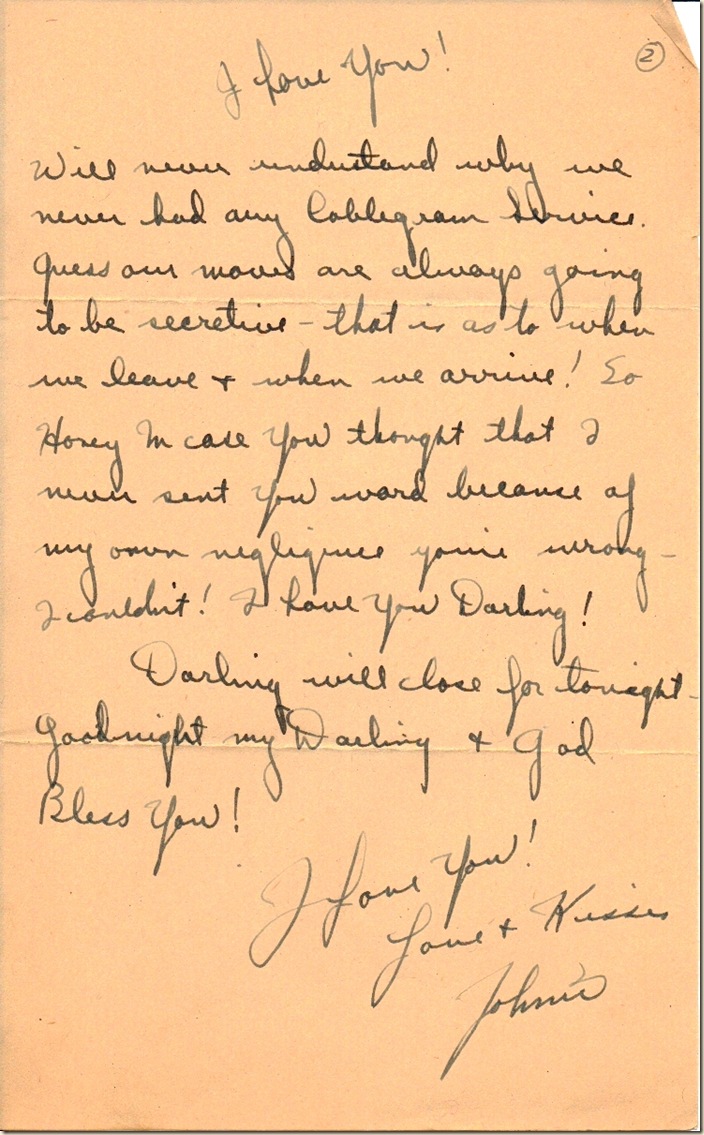 2
I Love You!
Will never understand why we
never had any Cablegram Service.
Guess our moves are always going
to be secretive - that is as to when
we leave + when we arrive! So
Honey In case You thought that I
never sent You word because of
my own negligence you're wrong -
I couldn't! I Love You Darling!
Darling will close for tonight -
Goodnight my Darling + God
Bless You!
I Love You!
Love + Kisses
Johnie